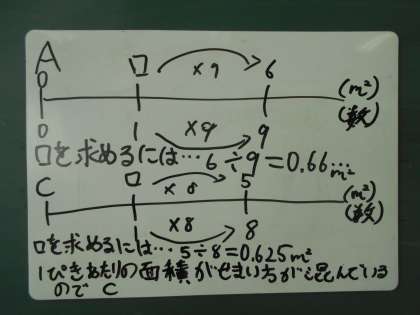 A
0 □ ×9 6 (m²)
0 1 ×9 9 (数)
□を求めるには…6÷9=0.66…m²
C □ ×8 5 (m²)
1 ×8 8 (数)
□を求めるには…5÷8=0.625m²
1ぴきあたりの面積がせまい方が混んでいる
ので C